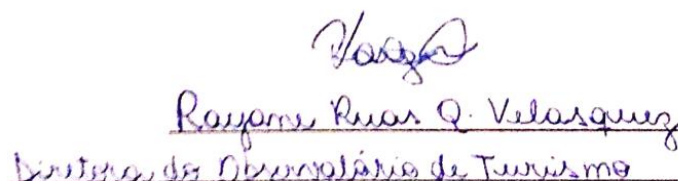 Rayane Ruas Q. Velasquez
Diretora do Observatório de Turismo